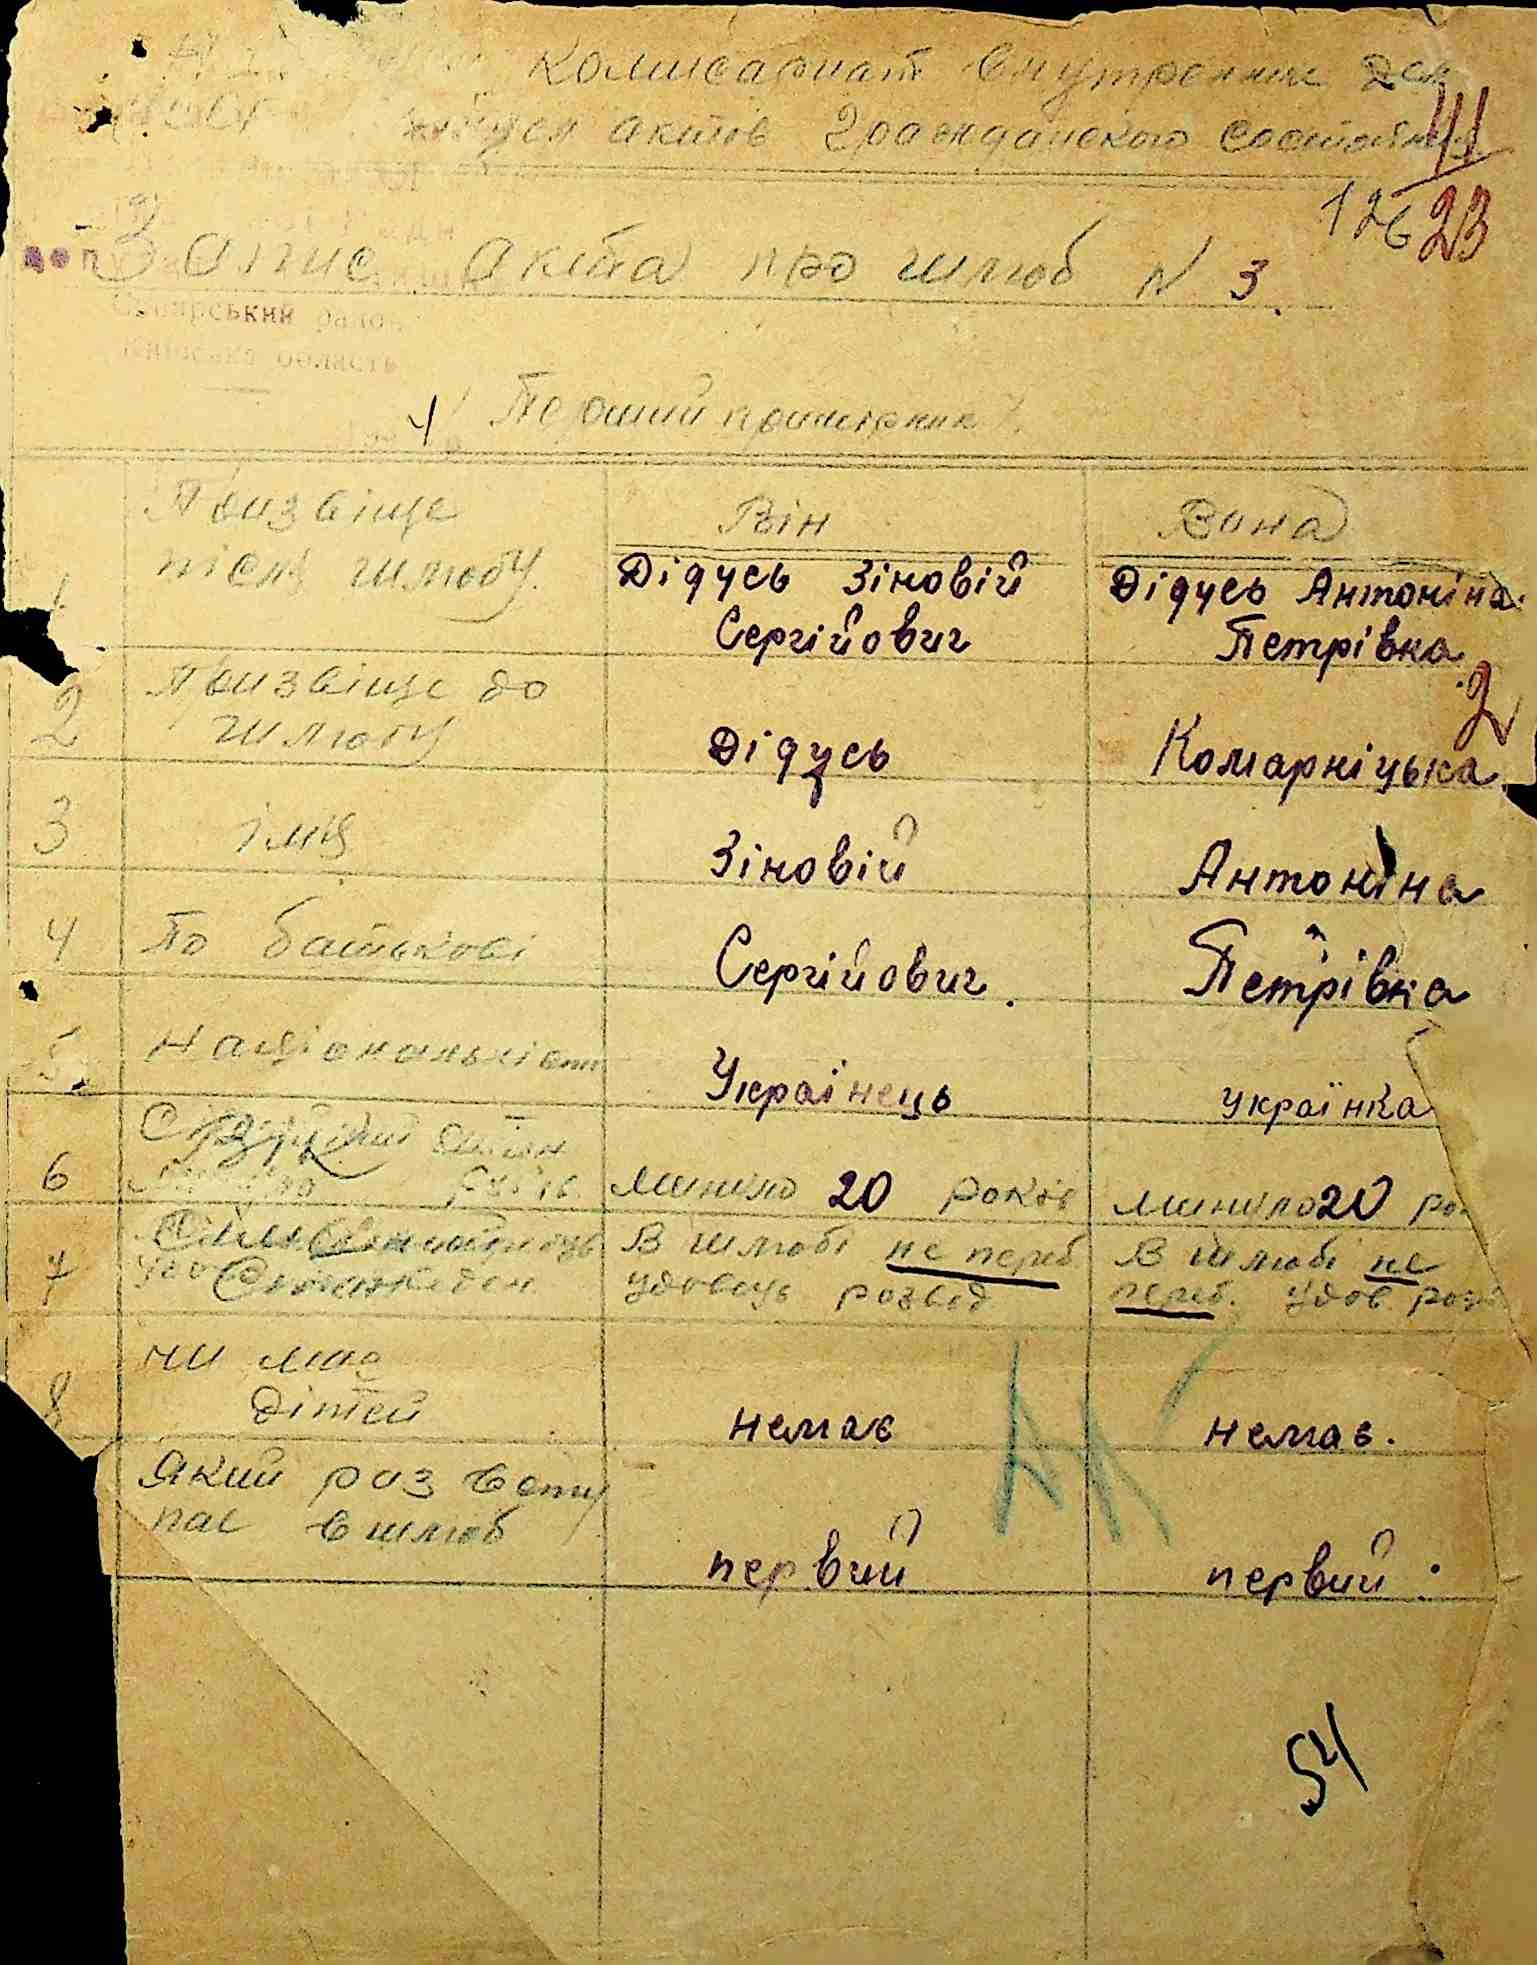 Комисариат Внутренних Дел
актов гражданского состояния
41
126 23
Запис акта про шлюб N 3.
ський район
область
Перший примірник
Призвіще
після шлюбу.
Він
Вона
1
Дідусь Зіновій
Сергійович
Дідусь Антоніна
Петрівка
2
Призвіще до
шлюбу
Дідусь
Комарніцька
2
3
імя
Зіновій
Антоніна
4
По батькові
Сергійович.
Петрівка
5.
Національність
Украінець
українка
6
Вік
минуло 20 років
минуло 20
7
Сімейний
Стан
В шлюбі не переб
удовець розвед
В шлюбі не
переб. удов.
8
чи має
дітей
немає
немає.
Який раз всту
пає в шлюб
первий
первий
54